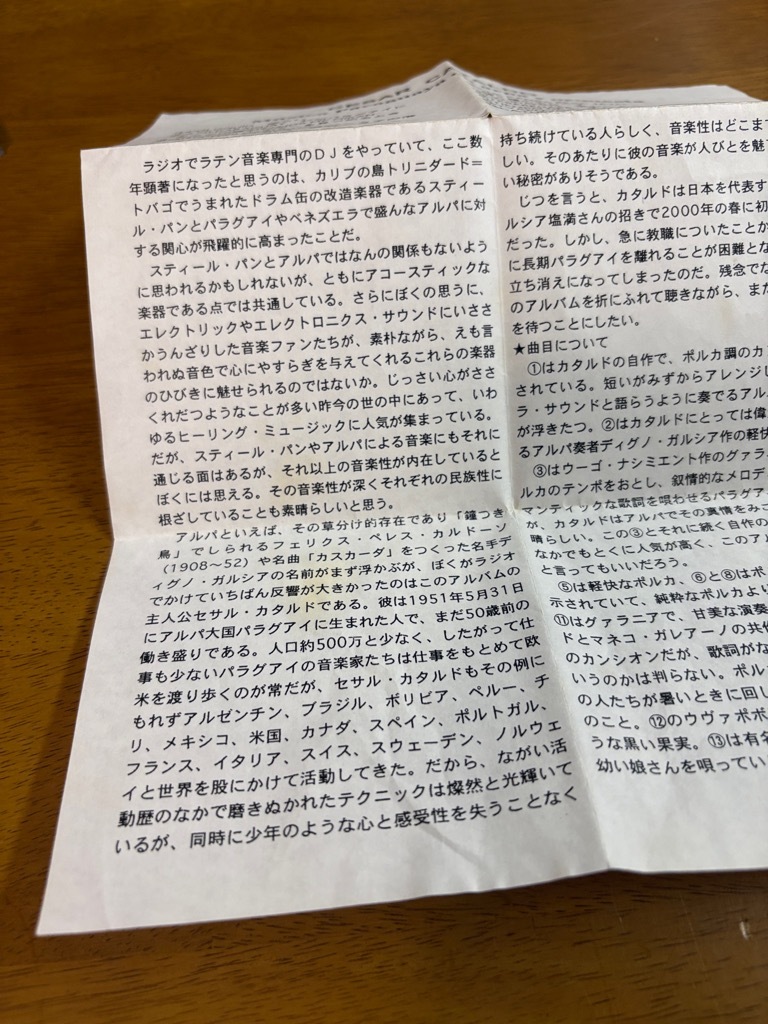 ラジオでラテン音楽専門のDJをやっていて、ここ数
年顕著になったと思うのは、カリブの島トリニダード=
トバゴでうまれたドラム缶の改造楽器であるスティー
ル・パンとパラグアイやベネズエラで盛んなアルパに対
する関心が飛躍的に高まったことだ。
スティール・パンとアルパではなんの関係もないよう
に思われるかもしれないが、ともにアコースティックな
楽器である点では共通している。さらにぼくの思うに、
エレクトリックやエレクトロニクス・サウンドにいささ
かうんざりした音楽ファンたちが、素朴ながら、えも言
われぬ音色で心にやすらぎを与えてくれるこれらの楽器
のひびきに魅せられるのではないか。じっさい心がささ
くれだつようなことが多い昨今の世の中にあって、いわ
ゆるヒーリング・ミュージックに人気が集まっている。
だが、スティール・パンやアルパによる音楽にもそれに
通じる面はあるが、それ以上の音楽性が内在していると
ぼくには思える。その音楽性が深くそれぞれの民族性に
根ざしていることも素晴らしいと思う。
アルパといえば、その草分け的存在であり「鐘つき
鳥」でしられるフェリクス・ペレス・カルドーソ
(1908~52)や名曲「カスカーダ」をつくった名手デ
ィグノ・ガルシアの名前がまず浮かぶが、ぼくがラジオ
でかけていちばん反響が大きかったのはこのアルバムの
主人公セサル・カタルドである。彼は1951年5月31日
にアルパ大国パラグアイに生まれた人で、まだ50歳前の
働き盛りである。人口約500万と少なく、したがって仕
事も少ないパラグアイの音楽家たちは仕事をもとめて欧
米を渡り歩くのが常だが、セサル・カタルドもその例に
もれずアルゼンチン、ブラジル、ボリビア、ペルー、チ
リ、メキシコ、米国、カナダ、スペイン、ポルトガル、
フランス、イタリア、スイス、スウェーデン、ノルウェ
イと世界を股にかけて活動してきた。だから、ながい活
動歴のなかで磨きぬかれたテクニックは燦然と光輝いて
いるが、同時に少年のような心と感受性を失うことなく
持ち続けている人らしく、音楽性はどこま
しい。そのあたりに彼の音楽が人びとを魅
い秘密がありそうである。
じつを言うと、カタルドは日本を代表す
ルシア塩満さんの招きで2000年の春に初
だった。しかし、急に教職についたことか
に長期パラグアイを離れることが困難とな
立ち消えになってしまったのだ。残念でな
のアルバムを折にふれて聴きながら、また
を待つことにしたい。
★曲目について
①はカタルドの自作で、ポルカ調のカ
されている。短いがみずからアレンジし
ラ・サウンドと語らうように奏でるアル
が浮きたつ。②はカタルドにとっては偉
るアルパ奏者ディグノ・ガルシア作の軽快
③はウーゴ・ナシミエント作のグァラ
ルカのテンポをおとし、叙情的なメロデ
マンティックな歌詞を唄わせるパラグア
が、カタルドはアルパでその真情をみご
晴らしい。この③とそれに続く自作の
なかでもとくに人気が高く、このア
と言ってもいいだろう。
⑤は軽快なポルカ、⑥と⑧はポ
示されていて、純粋なポルカより
⑪はグァラニアで、甘美な演奏
ドとマネコ・ガレアーノの共作
のカンシオンだが、歌詞がな
いうのかは判らない。ポル
の人たちが暑いときに回し
のこと。⑫のウヴァポボ
うな黒い果実。⑬は有名
幼い娘さんを唄ってい